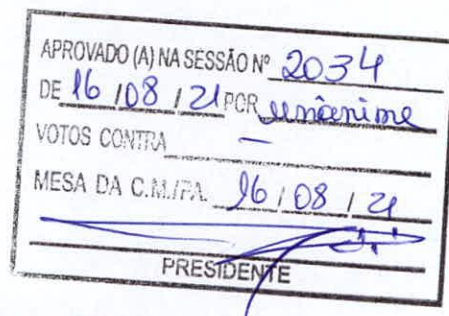 APROVADO (A) NA SESSÃO Nº 2034
DE 16 / 08 / 21 POR unânime
VOTOS CONTRA —
MESA DA C.M./PA. 16 / 08 / 21
PRESIDENTE